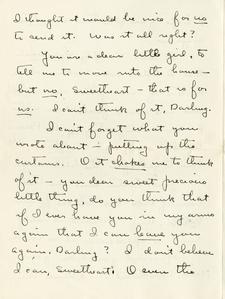 I thought it would be nice for us
to send it. Was it all right?
You are a dear little girl, to
tell me to move into the house –
but no, Sweetheart – that is for
us. I can't think of it, Darling.
I can't forget what you
wrote about – putting up the
curtains. O it chokes me to think
of it – you dear sweet precious
little thing, do you think that
if I ever have you in my arms
again that I can leave you
again, Darling? I don't believe
I can, Sweetheart. O even the